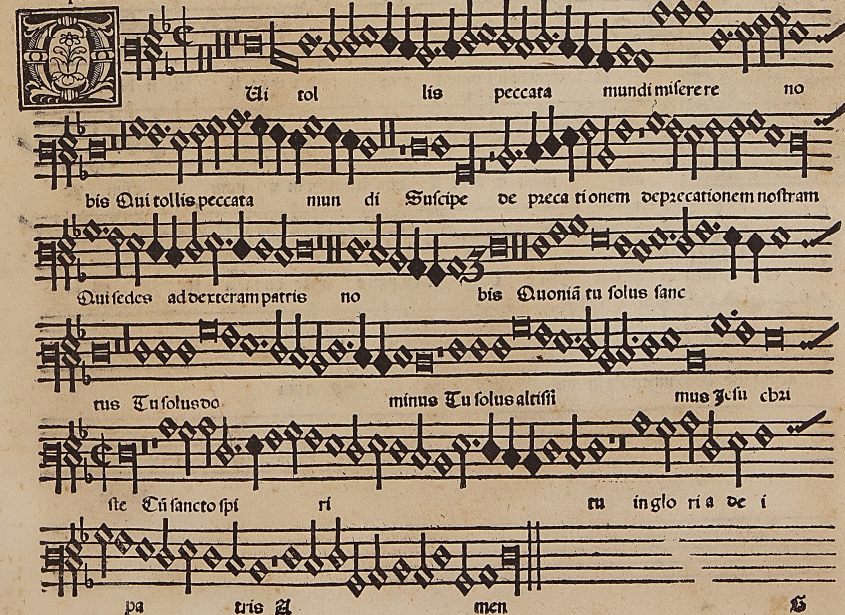 Ui tol lis peccata mundi miserere no
bis Qui tollis peccata mun di Suscipe de preca tionem deprecationem nostram
Qui sedes ad dexteram patris no bis Quoniā tu solus sanc
tus Tu solus do minus Tu solus altissi mus Jesu chri
ste Cū sancto spi ri tu in glo ri a de i
pa tris A men